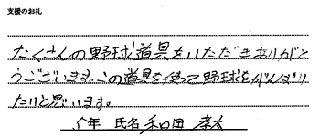 支援のお礼
たくさんの野球道具をいただきありがと
うございます。この道具を使って野球をがんばり
たいと思います。
5年 氏名 和田